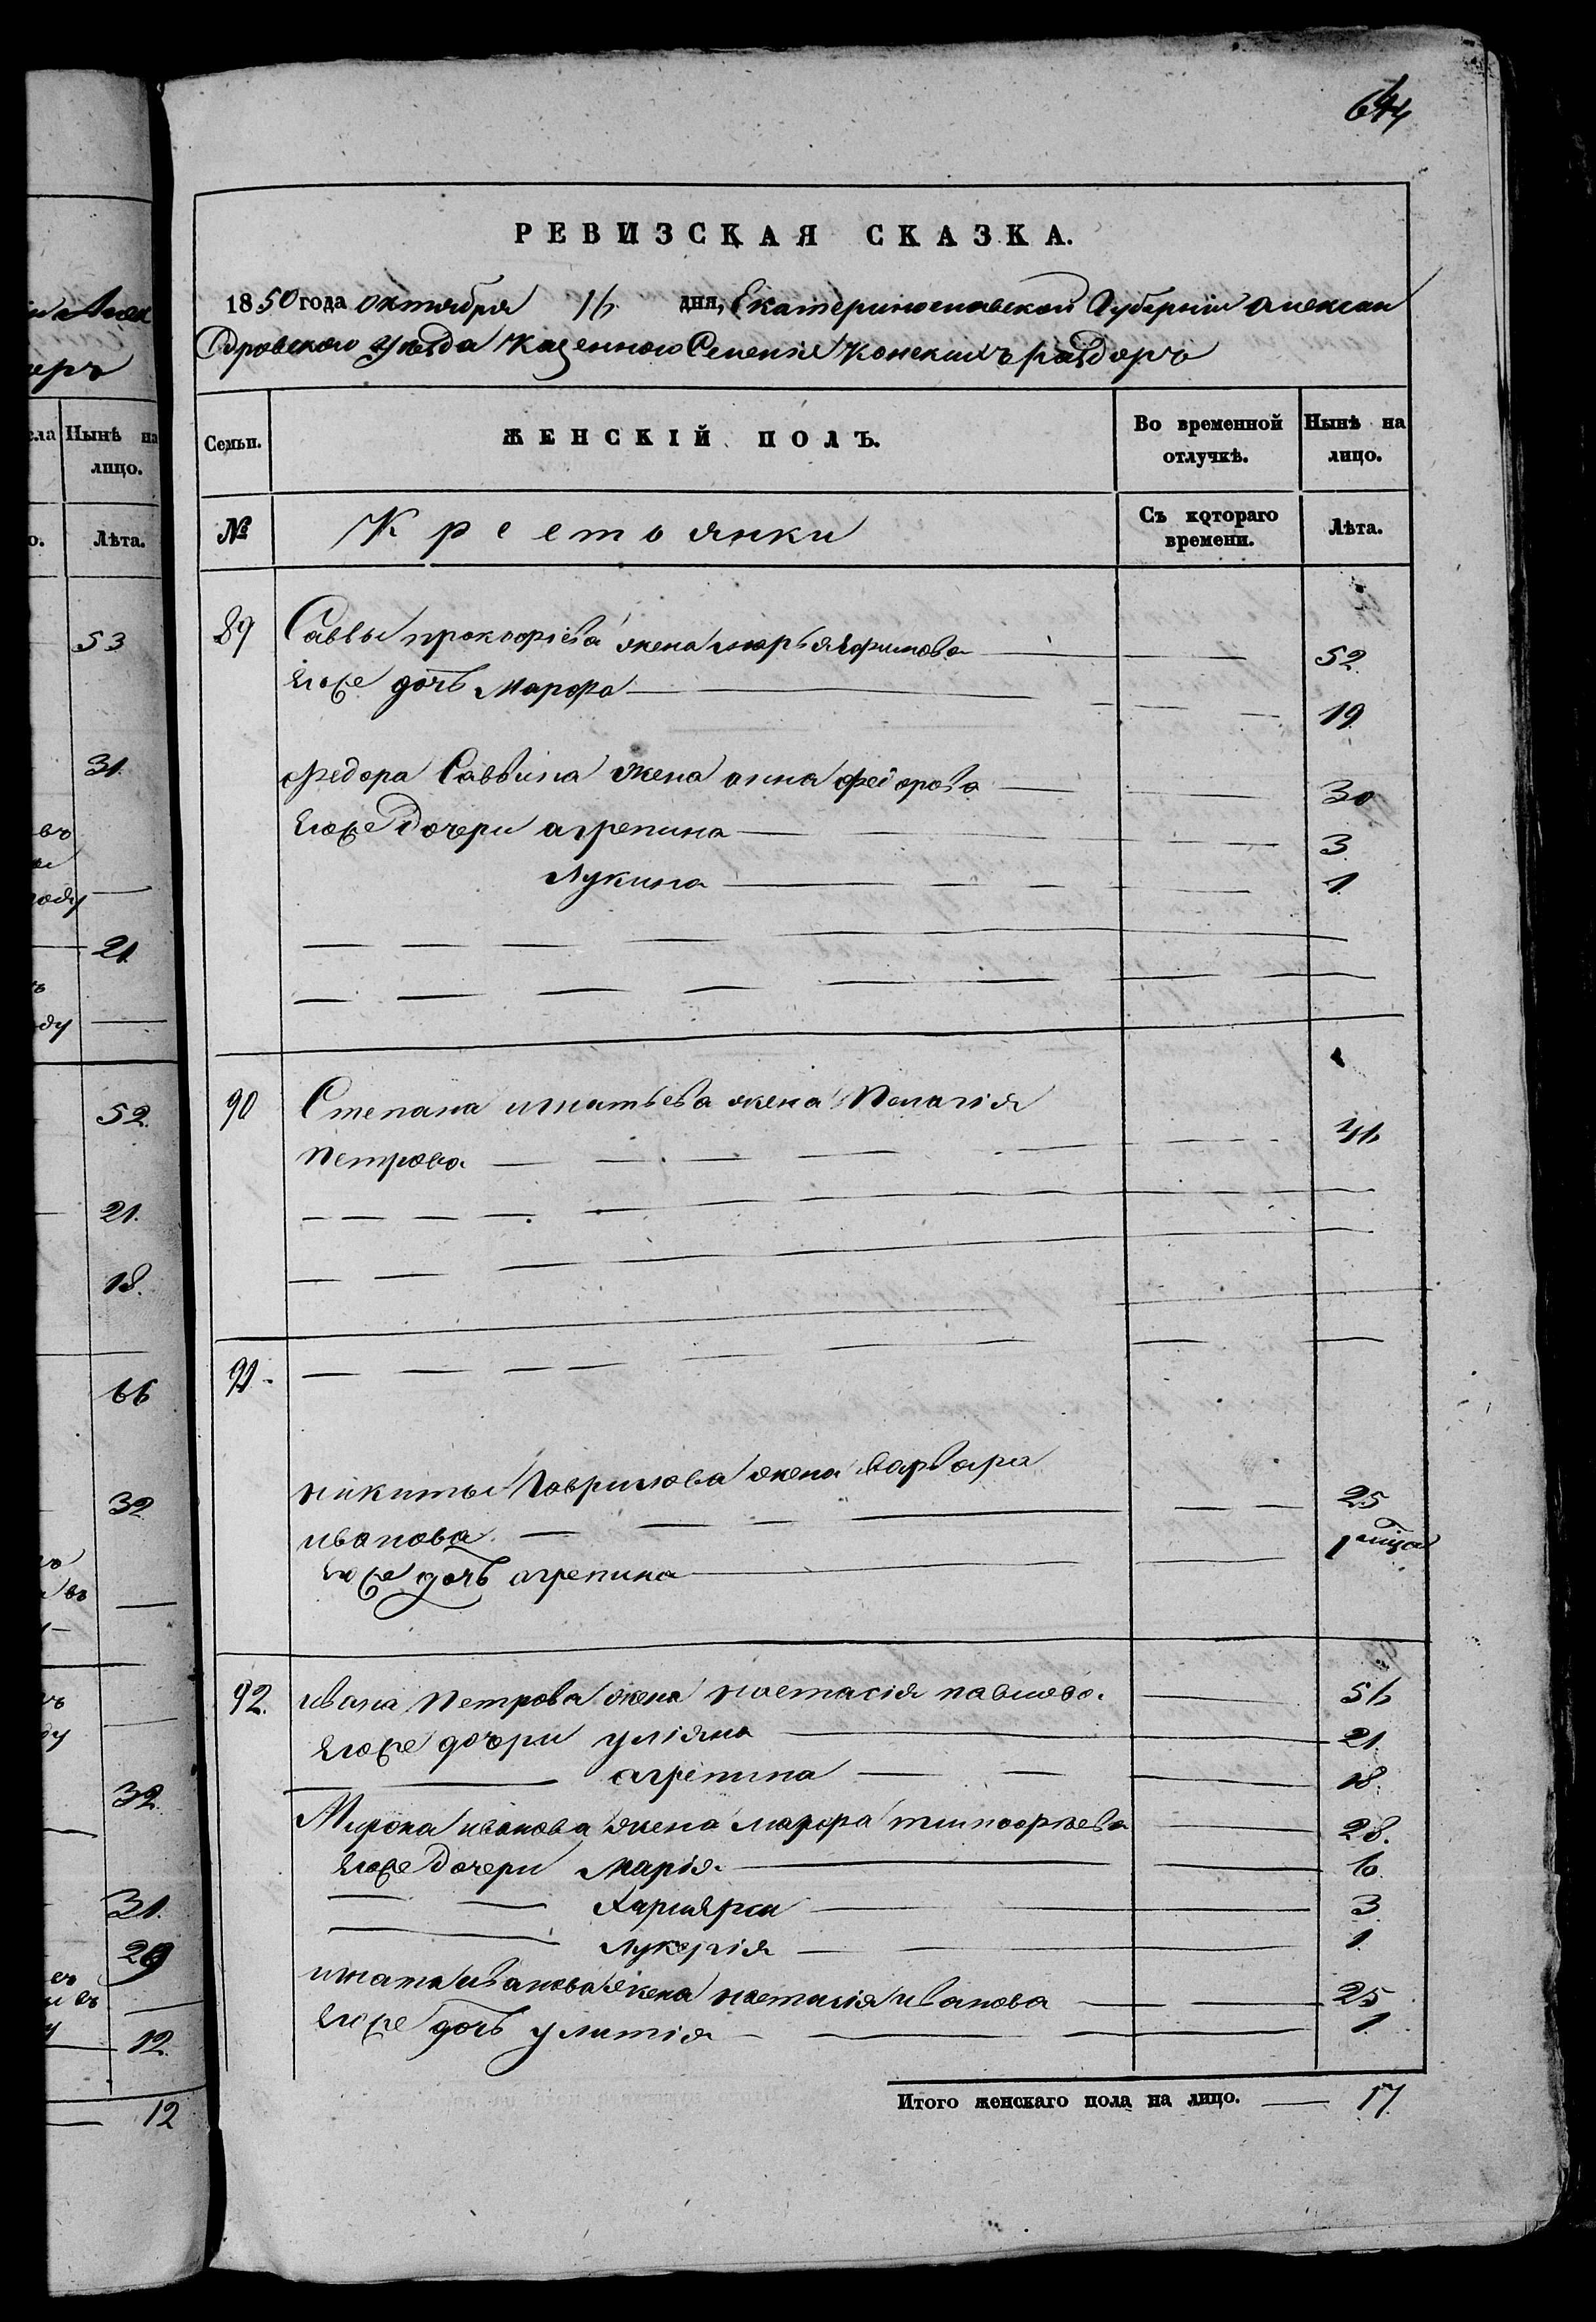 644
РЕВИЗСКАЯ СКАЗКА.
1850 года октября 16 дня, Екатеринославской Губернии Алексан
дровского уезда Казенного Селения Конскихъ раздоръ
Семьи. ЖЕНСКІЙ ПОЛЪ. Во временной отлучкѣ. Нынѣ на лицо.
№ Крестьянки Съ котораго времени. Лѣта.
89 Саввы прокофіева жена марья 52
Его же дочь Марфа 19
Федора Саввина жена анна 30
Его же дочери агрепина 3
Лукина 1
90 Степана игнатьева жена Пелагія
Петрова 46
91
никиты Гаврилова жена варвара
иванова 25
Его же дочь агрепина 1 
92. ивана Петрова жена настасія павлова 56
Его же дочери уліяна 21
агрепина 18
Мирона иванова жена марфа тимофѣева 28.
Его же дочери Марія 6
3
Лукерія 1
игната иванова жена настасія иванова 25
Его же дочь улитія 1
Итого женскаго пола на лицо. 17
Нынѣ на
лицо.
Лѣта.
53
31.
21
52.
21.
18.
66
32
32.
31.
29
12.
12